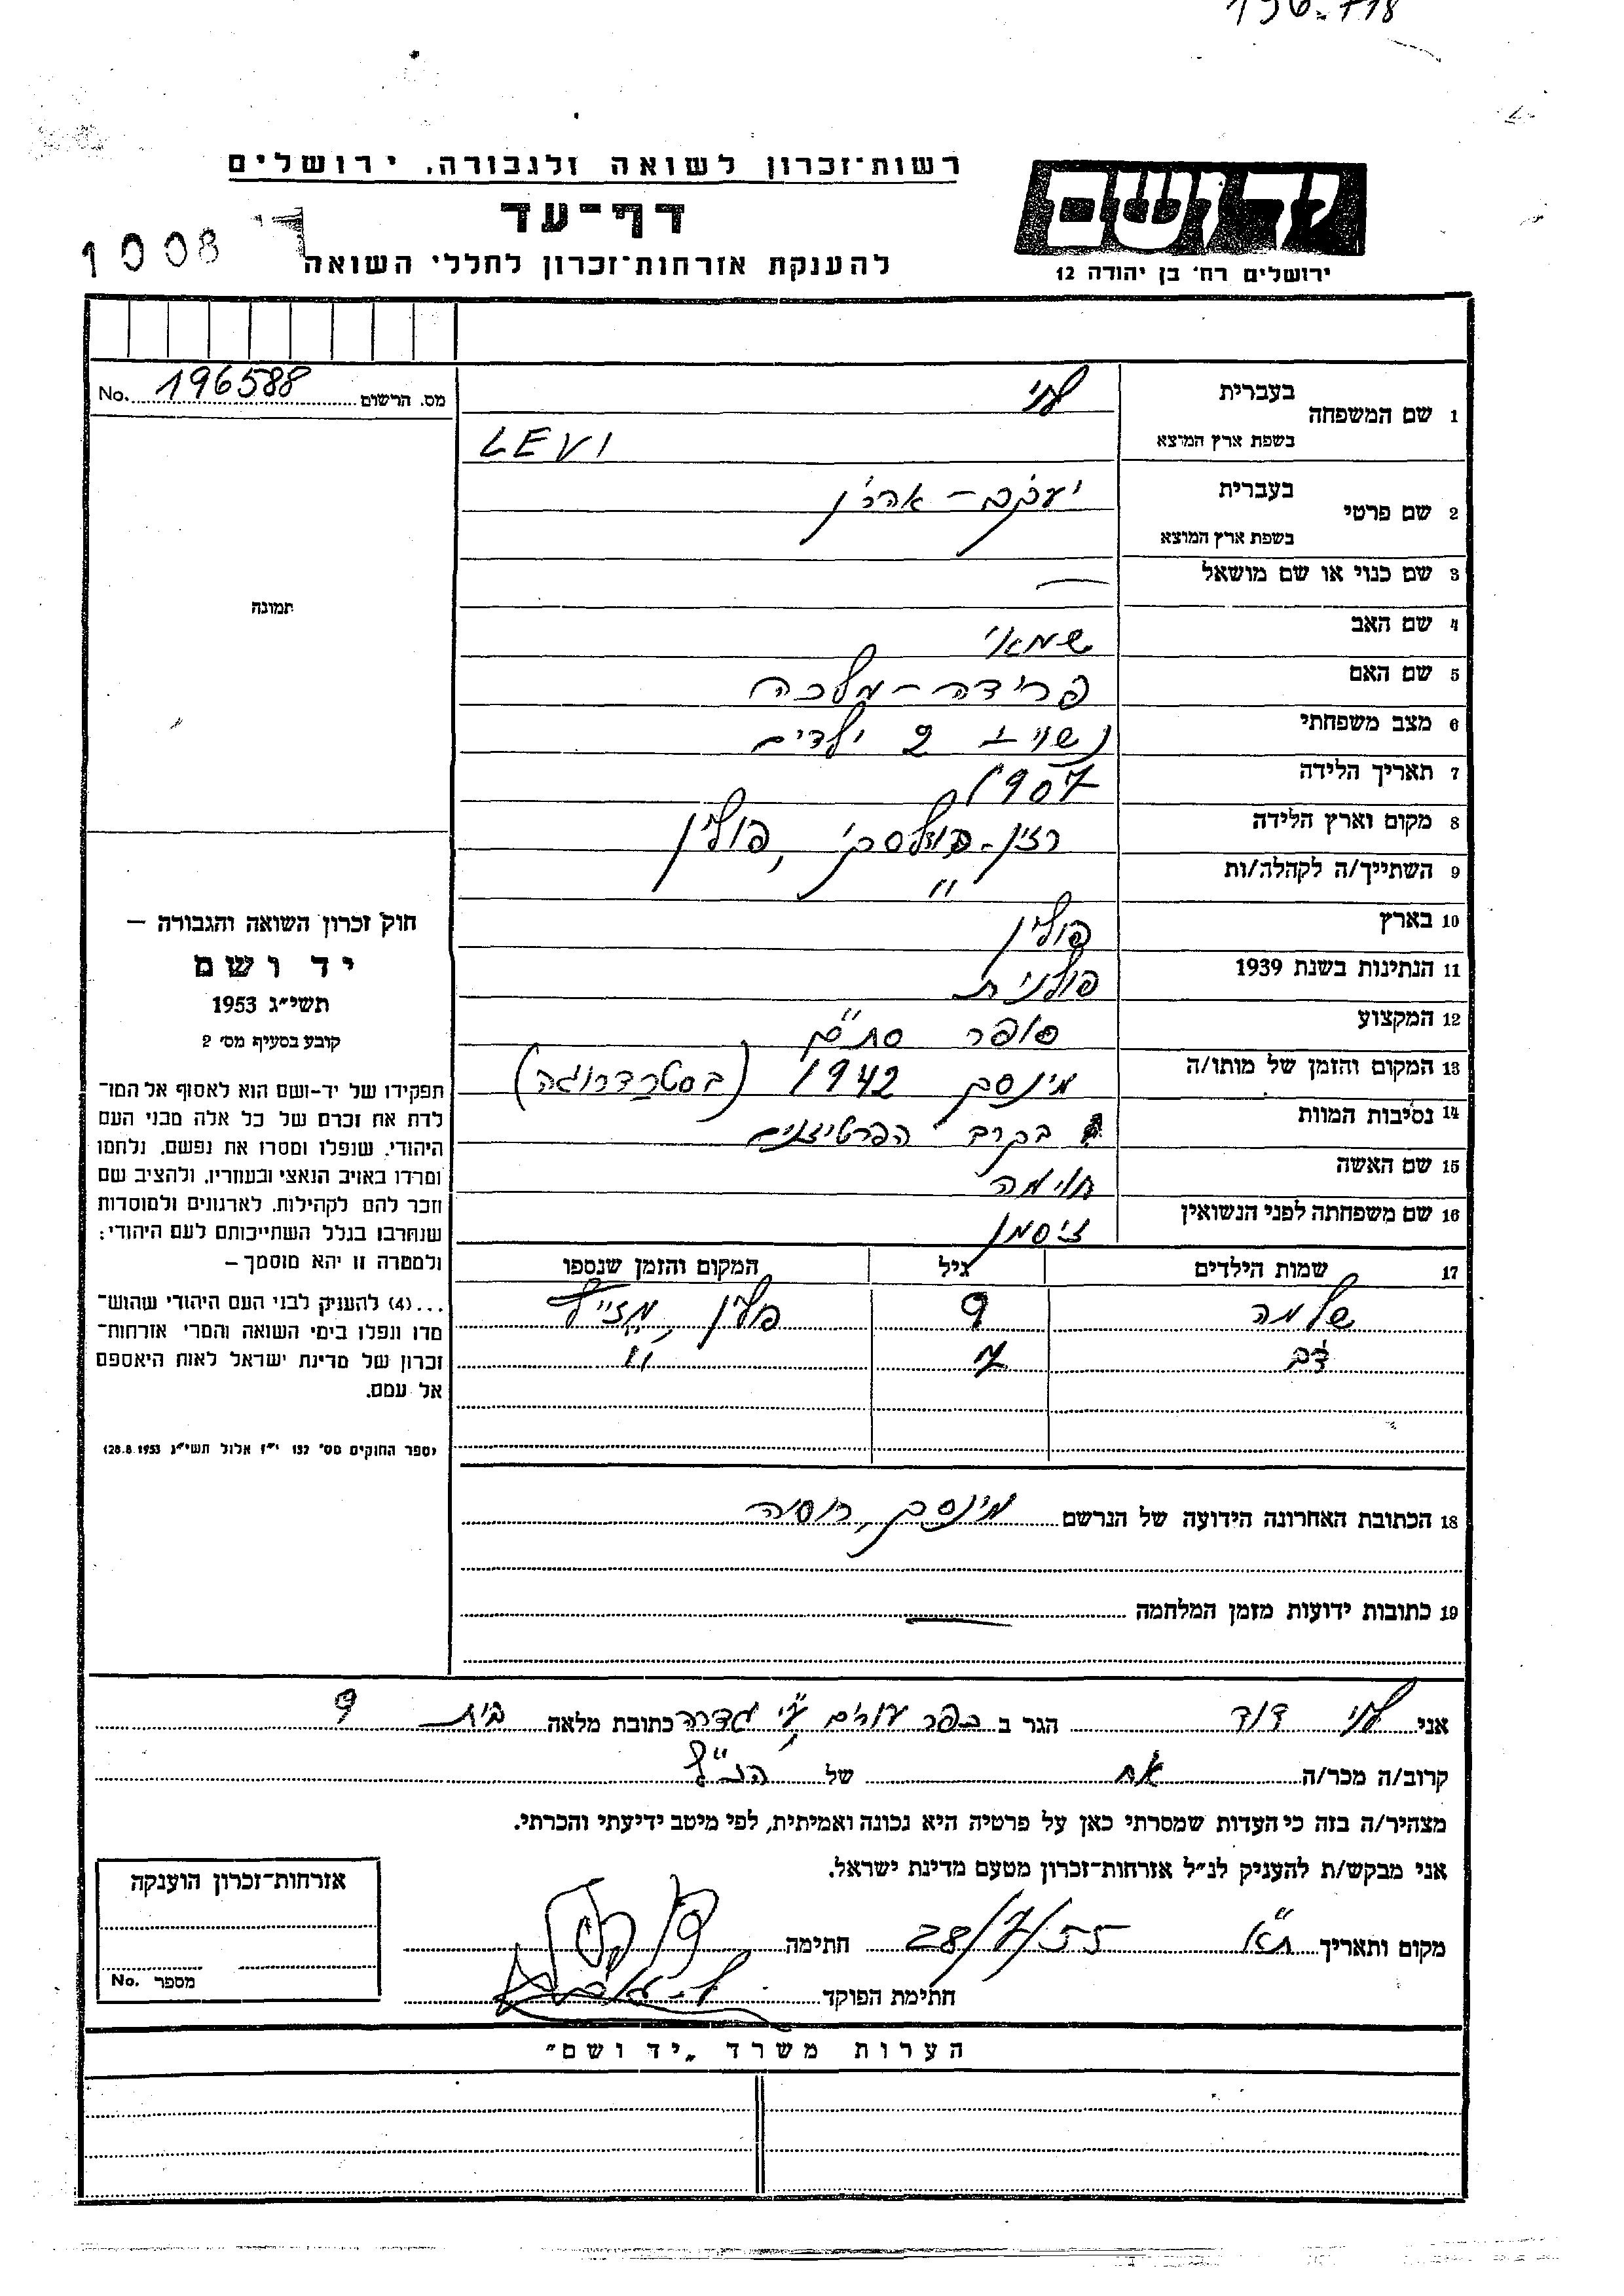 רשות־זכרון לשואה ולגבורה, ירושלים
ידושם
דף־עד
1008
להענקת אזרחות־זכרון לחללי השואה
ירושלים רח׳ בן יהודה 12
No. 196588 מס. הרשום
1 שם המשפחה בעברית לוי
בשפת ארץ המוצא LEVI
2 שם פרטי בעברית יעקב - אהרן
בשפת ארץ המוצא
תמונה
3 שם כנוי או שם מושאל —
4 שם האב שמאי
5 שם האם פרידה - מלכה
6 מצב משפחתי נשוי + 2 ילדים
7 תאריך הלידה 1907
8 מקום וארץ הלידה פולין
9 השתייך/ה לקהלה/ות "
10 בארץ פולין
11 הנתינות בשנת 1939 פולנית
12 המקצוע סופר סת"ם
13 המקום והזמן של מותו/ה מינסק 1942
14 נסיבות המוות בקרב הפרטיזנים
15 שם האשה
16 שם משפחתה לפני הנשואין זיסמן
17 שמות הילדים גיל המקום והזמן שנספו
שלמה 9 פולין,
דב 7 "
חוק זכרון השואה והגבורה —
יד ושם
תשי״ג 1953
קובע בסעיף מס׳ 2
תפקידו של יד־ושם הוא לאסוף אל המו־
לדת את זכרם של כל אלה מבני העם
היהודי, שנפלו ומסרו את נפשם, נלחמו
ומרדו באויב הנאצי ובעוזריו, ולהציב שם
וזכר להם לקהילות, לארגונים ולמוסדות
שנחרבו בגלל השתייכותם לעם היהודי;
ולמטרה זו יהא מוסמך —
...(4) להעניק לבני העם היהודי שהוש־
מדו ונפלו בימי השואה והמרי אזרחות־
זכרון של מדינת ישראל לאות היאספם
אל עמם.
(ספר החוקים מס׳ 132 י״ז אלול תשי״ג 28.8.1953)
18 הכתובת האחרונה הידועה של הנרשם מינסק, רוסיה
19 כתובות ידועות מזמן המלחמה —
אני לוי דוד הגר ב כפר עזרים ע"י גדרה כתובת מלאה בית 9
קרוב/ה מכר/ה אח של הנ"ל
מצהיר/ה בזה כי העדות שמסרתי כאן על פרטיה היא נכונה ואמיתית, לפי מיטב ידיעתי והכרתי.
אני מבקש/ת להעניק לנ״ל אזרחות־זכרון מטעם מדינת ישראל.
מקום ותאריך ת"א 28/7/55 חתימה
חתימת הפוקד
אזרחות־זכרון הוענקה
No. מספר
הערות משרד „יד ושם״